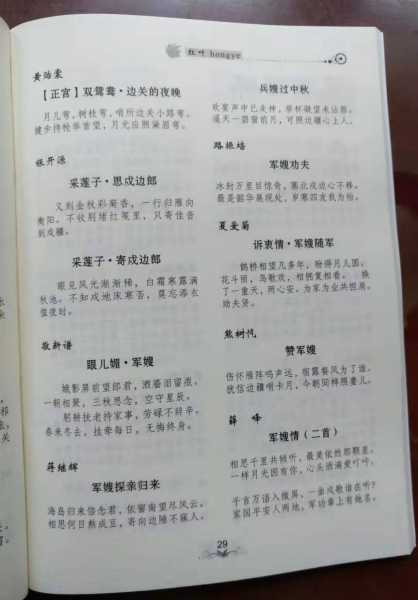 红叶 hongye
黄治家
【正宫】双鸳鸯·边关的夜晚
月儿弯，树枝弯，哨所边关小路弯。
健步持枪举首望，月光后照黛眉弯。
张开源
采莲子·思戍边郎
又到金秋彩菊香，一行归雁向
衡阳。不收别绪红笺里，只寄佳音
到戍疆。
采莲子·寄戍边郎
眼见风光渐渐稀，白霜寒露满
秋池。不知戍地床寒否，莫忘添衣
值夜时。
敬新谱
眼儿媚·军嫂
娥影屏前望郎君，酒靥泪留痕。
一朝相聚，三秋思念，空守星辰。
躬耕扶老持家事，劳碌不辞辛。
春来冬去，挂牵每日，无悔终身。
蒋继辉
军嫂探亲归来
海岛归来倍念君，依窗南望尽风云。
相思何日熬成豆，寄向边陲不寐人。
兵嫂过中秋
欢宴声中已走神，举杯凝望未沾唇。
遥天一路留前月，可照边疆心上人。
路振培
军嫂劝夫
冰封万里目惊奇，塞北戍边心不移。
最是韶华展现处，岁寒四友我为怡。
夏爱菊
诉衷情·军嫂随军
鹊桥相望几多年，盼得月儿圆。
花斗丽，鸟歌欢，相拥复相看。 换
了一重天，两心安。为家为业共担肩，
励夫贤。
熊树忱
赞军嫂
伤怀雁阵鸣声远，宿露餐风为了谁。
犹信边疆明卡月，今朝同样照妻儿。
薛 峰
军嫂情（二首）
相思千里共倾听，最美依然那颗星。
一样月光因有你，心头滴滴爱叮咛。
千言万语入微屏，一曲戍歌谁在听？
家国平安人两地，军功章上有她名。
29